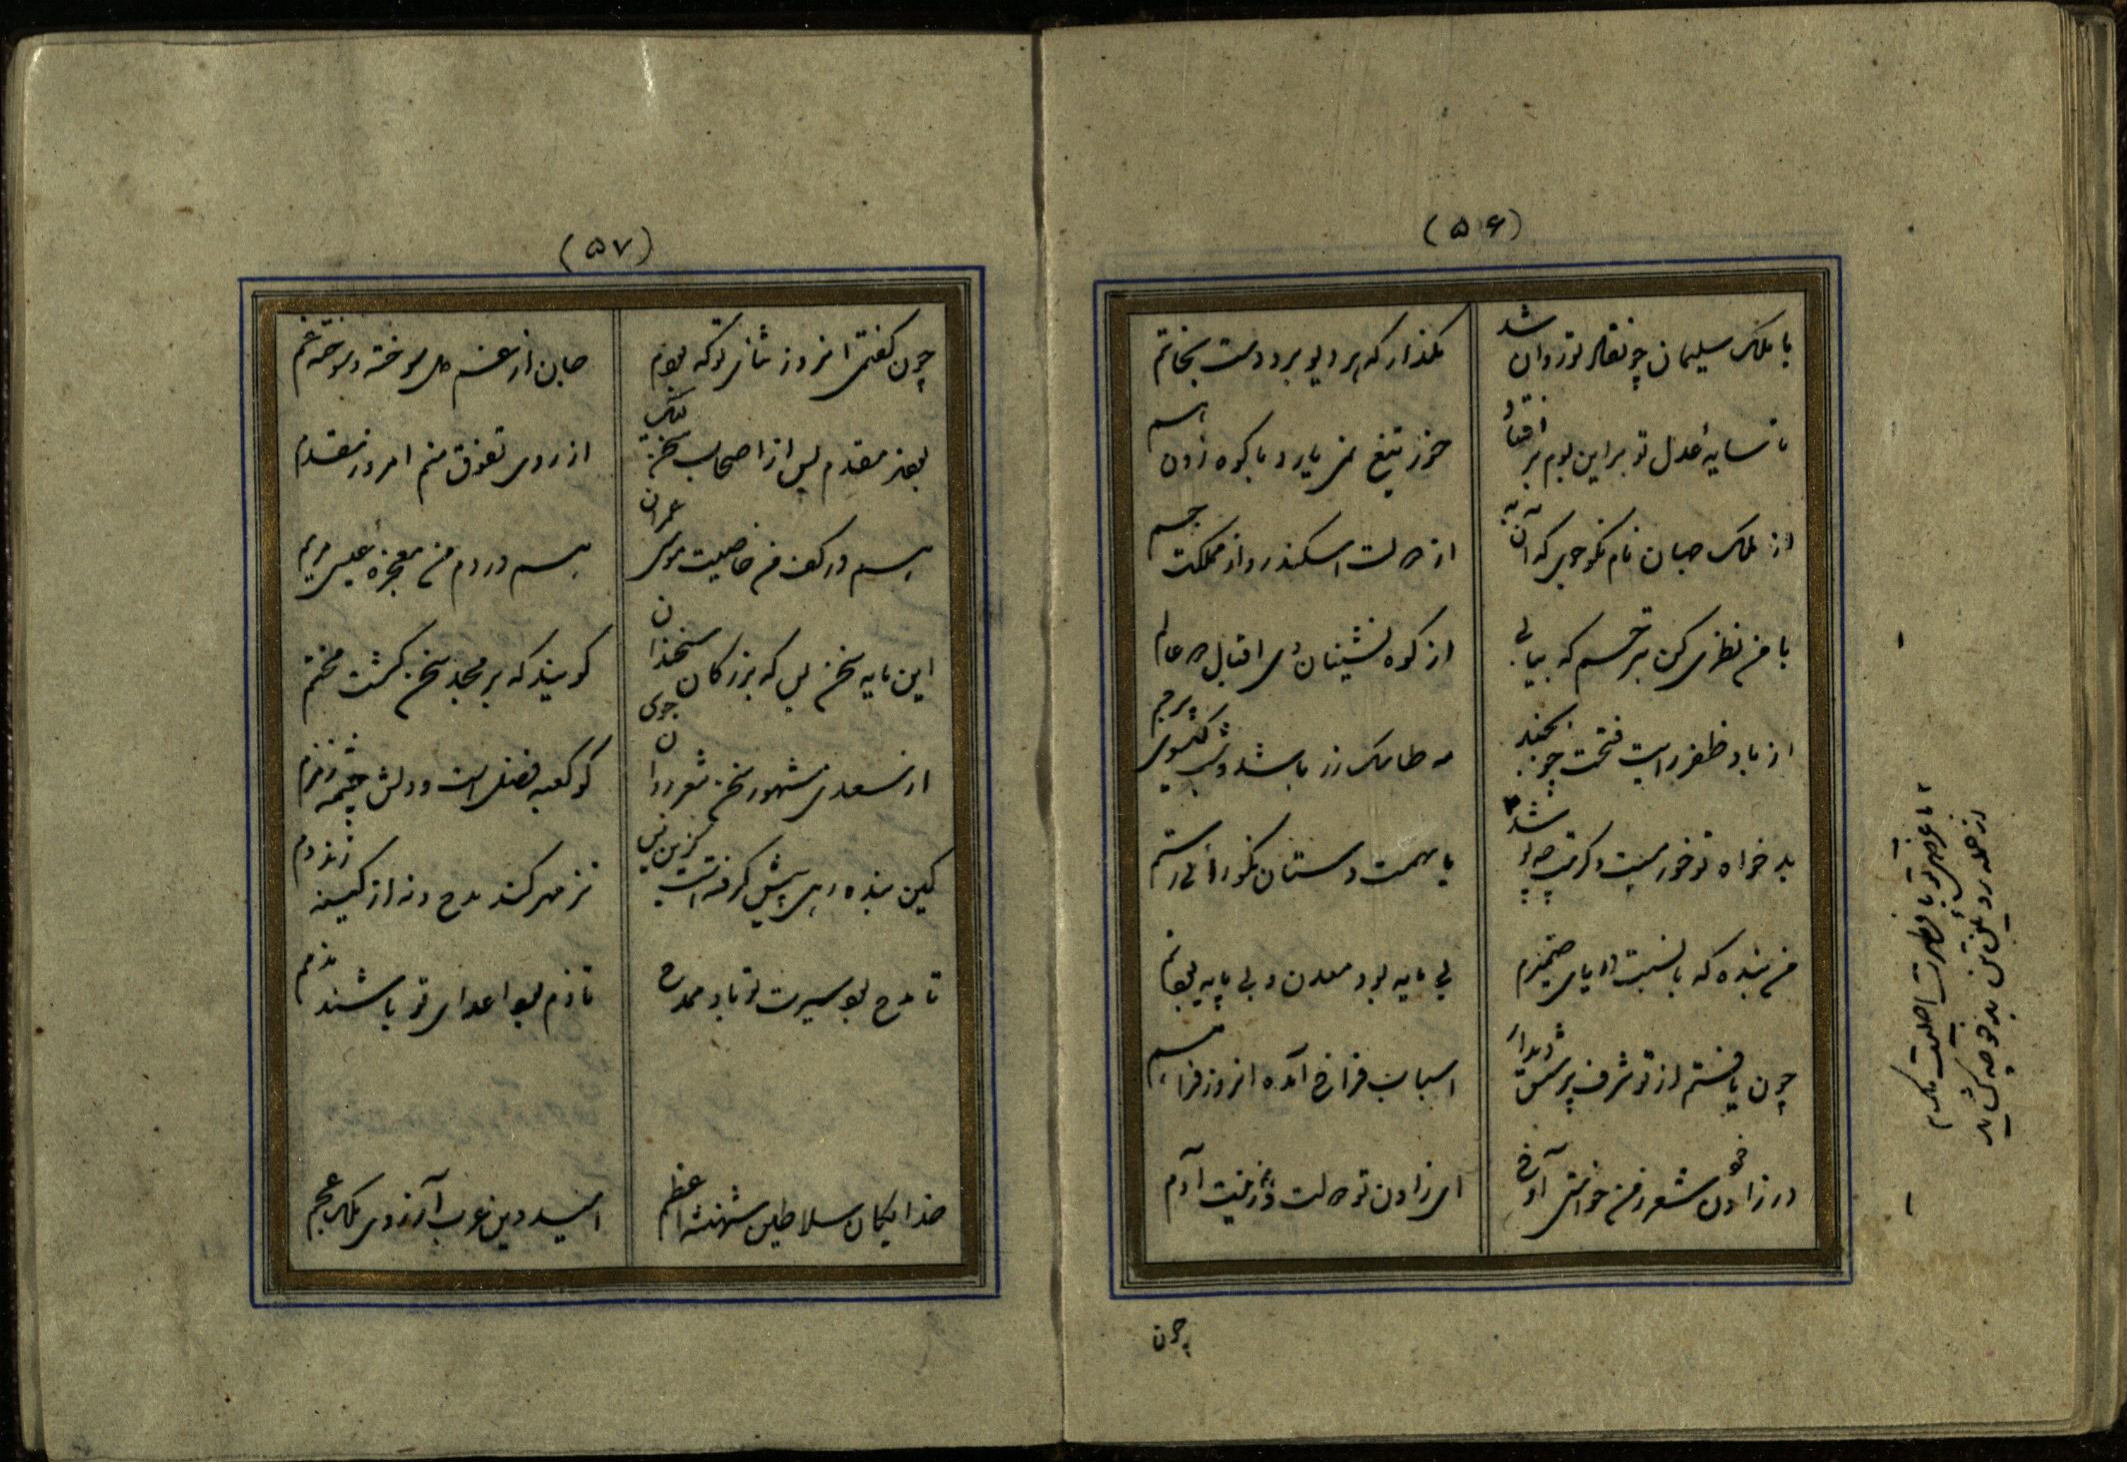 (۵۶)
با ملک سلیمان چو نفاذ تو روان شد
مگذار که هر دیو برد دست بخاتم
تا سایهٔ عدل تو براین بوم بر افتاد
خور تیغ نمی یارد با کوه زدن
از ملک جهان نام نکو جوی که آن به
از دولت اسکندر و از مملکت جم
با من نظری کن بترحم که بیابی
از کوه نشینان دعا اقبال دو عالم
از باد ظفر رایت فتحت چو بجنبد
مه طاسک زر باشد و شب گیسوی پرچم
بدخواه تو خود نیست وگر هست چه باشد
با همت دستان نکو رای رستم
من بنده که با نسبت دریای ضمیرم
بی مایه بود معدن و بی پایه بود یم
چون یافتم از تو شرف پرسش و دیدار
اسباب فراغ آمده امروز فراهم
در زادن شعر از من خواستی آخر
ای زادن تو دولت ذریت آدم
چون
(۵۷)
چون گفتمی امروز ثنای تو که بودم
جان از غم دل سوخته و سوخته غم
بودند مقدم پس از اصحاب سخن لیک
از روی تفوق منم امروز مقدم
هم در کف من خاصیت موسی عمران
هم در دم من معجزهٔ عیسی مریم
این مایه سخن بس که بزرگان سخندان
گویند که بر مجد سخن گشت مختم
از سعدی مشهور سخن شعر روان جوی
کو کعبه فضل است و دلش چشمه زمزم
کین بنده رهی پیش گرفته است کزین پس
نز مهر کند مدح و نه از کینه زند دم
تا مدح بود سیرت تو باد ممدح
تا ذم بود اعدای تو باشند مذمم
خدایگان سلاطین شهنشه اعظم
امید دین عرب آرزوی ملک عجم